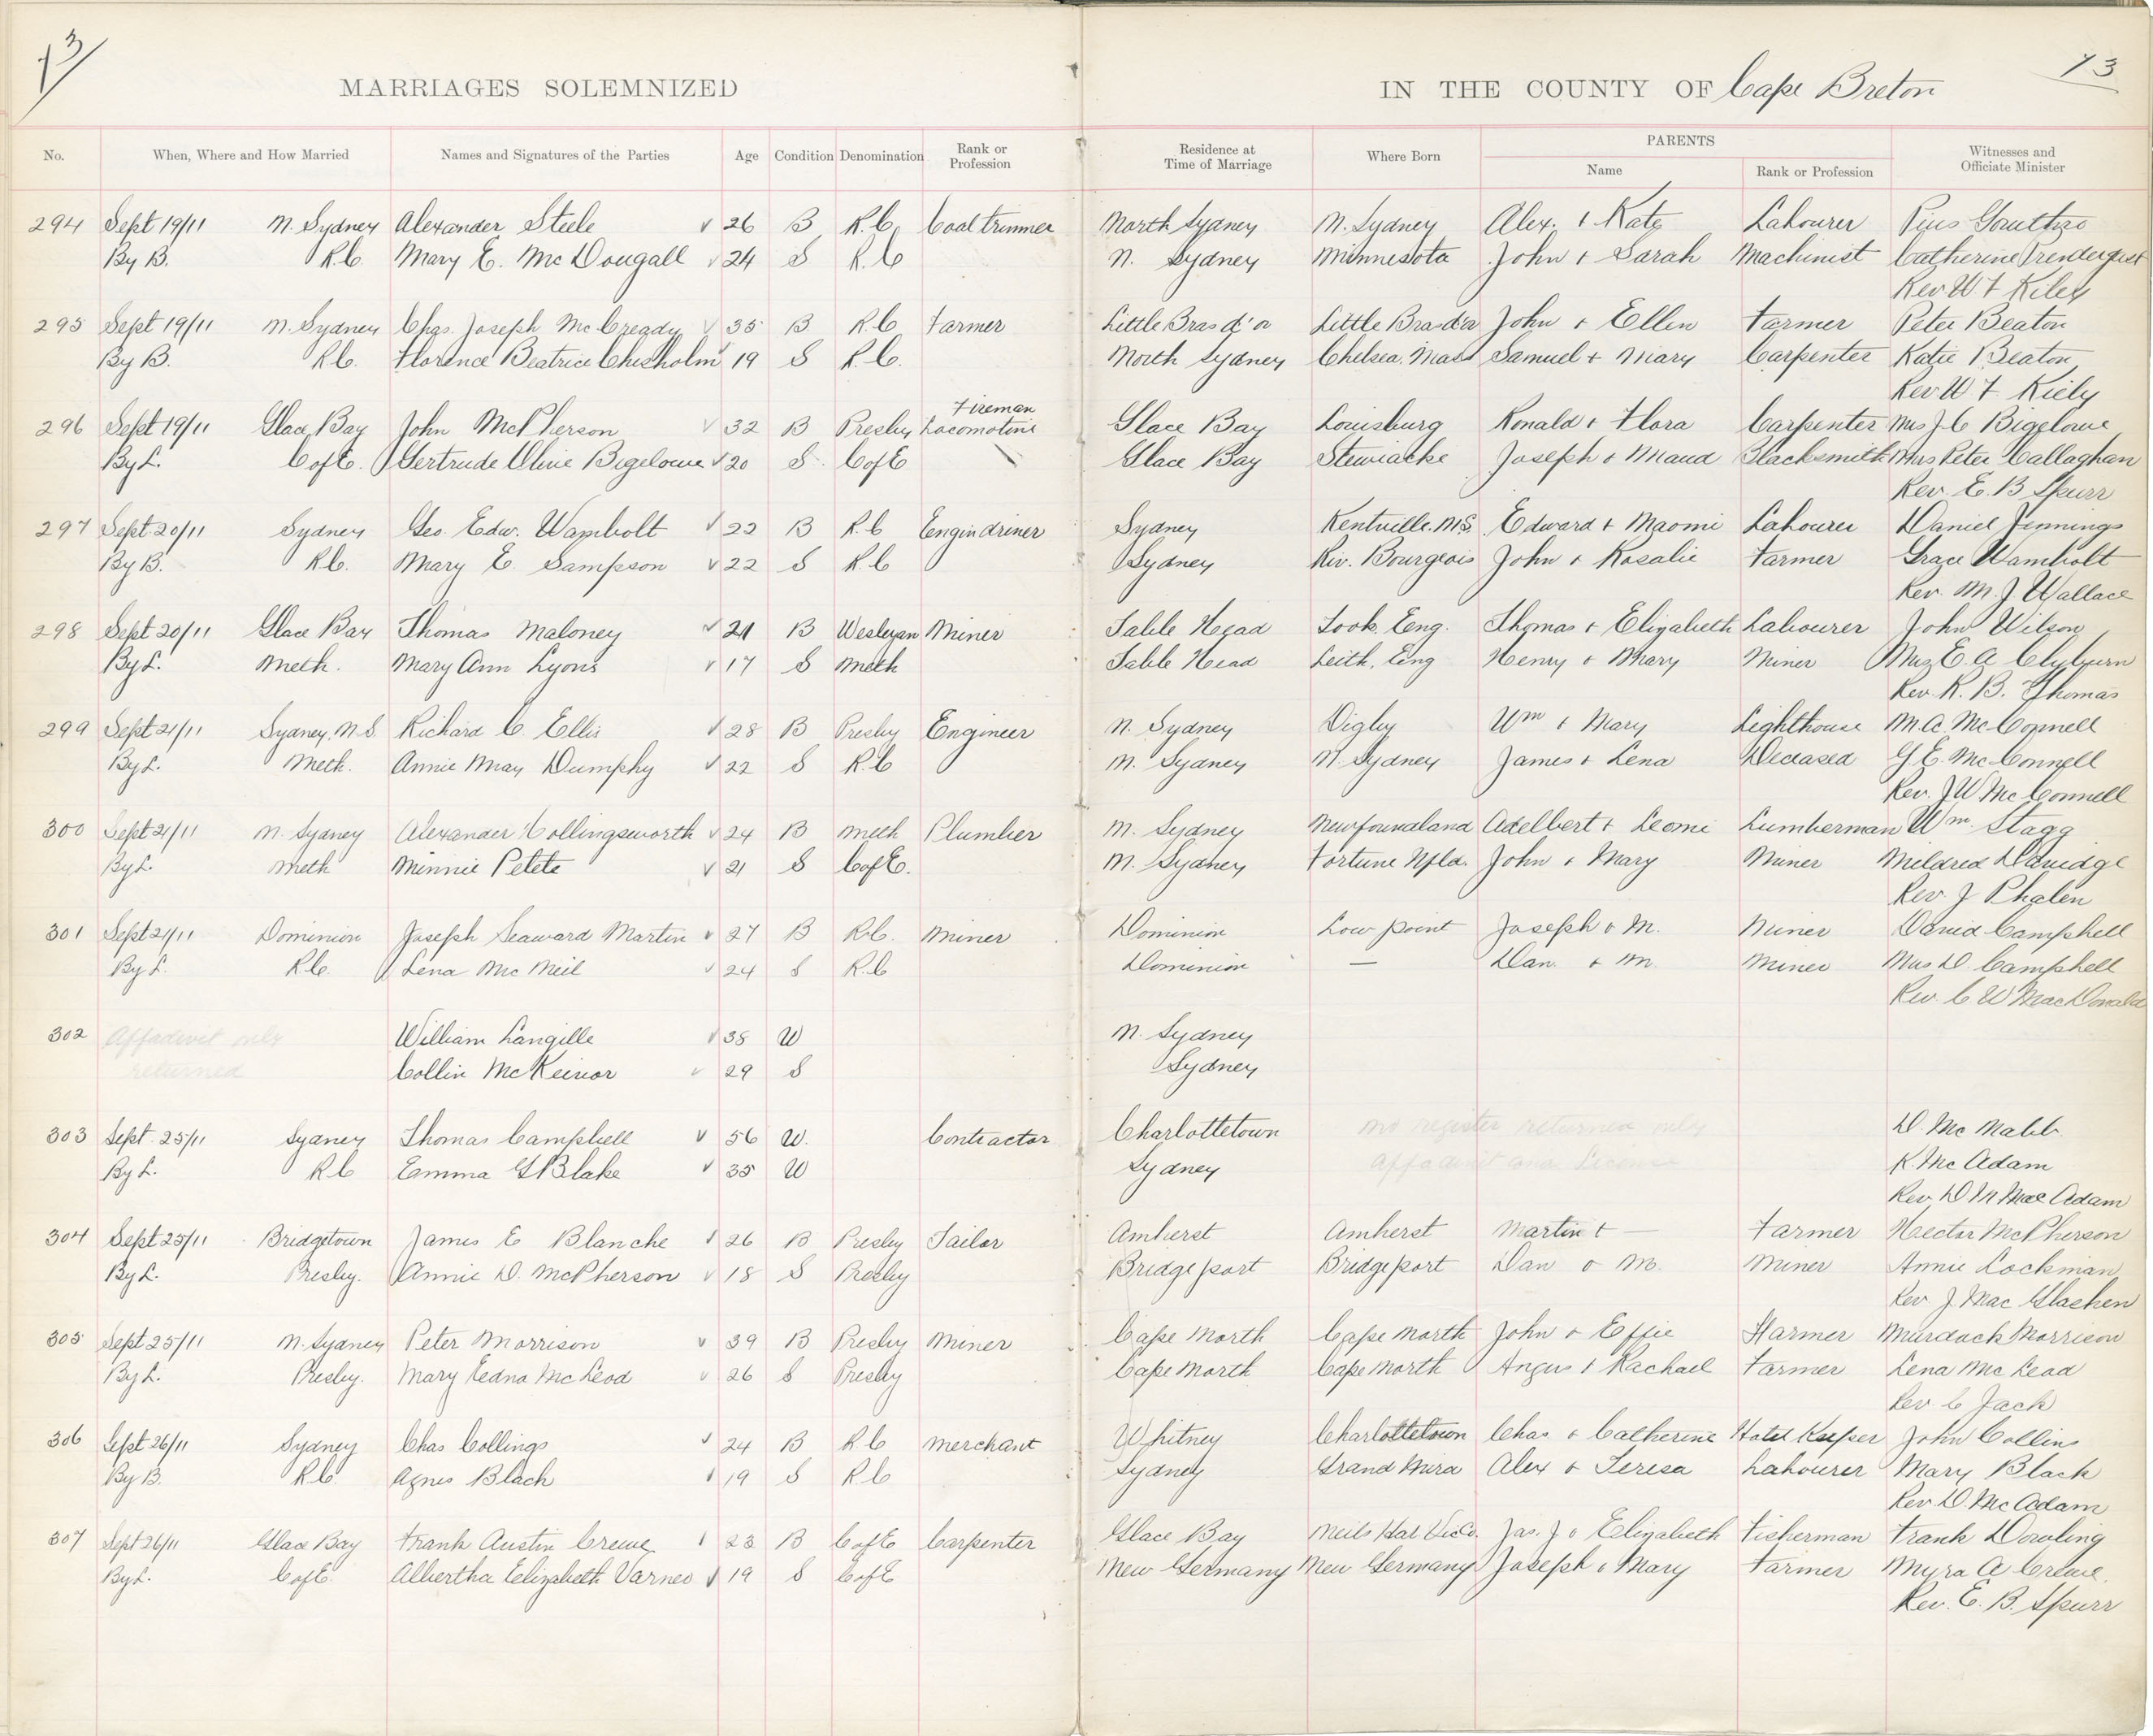 73
73
MARRIAGES SOLEMNIZED
IN THE COUNTY OF Cape Breton
No. When, Where and How Married Names and Signatures of the Parties Age Condition Denomination Rank or Profession Residence at Time of Marriage Where Born PARENTS Name Rank or Profession Witnesses and Officiate Minister
294 Sept 19/11 N. Sydney Alexander Steele 26 B R.C. Coal trimmer North Sydney N. Sydney Alex. + Kate Labourer Pius
By B. R.C. Mary E. McDougall 24 S R.C N. Sydney Minnesota John + Sarah Machinist Catherine Prendergast
Rev W F Kiley
295 Sept 19/11 N. Sydney Chas. Joseph McCready 35 B R.C Farmer Little Bras d'or Little Bras d'or John + Ellen Farmer Peter Beaton
By B. R.C. Florence Beatrice Chisholm 19 S R.C. North Sydney Chelsea, Mass Samuel + Mary Carpenter Katie Beaton
Rev W F Kiely
296 Sept 19/11 Glace Bay John McPherson 32 B Presby Fireman Locomotive Glace Bay Louisburg Ronald + Flora Carpenter Mrs J. C Bigelowe
By L. C of E. Gertrude Olive Bigelowe 20 S C of E Glace Bay Stewiacke Joseph + Maud Blacksmith Mrs Peter Callaghan
Rev. E. B Spurr
297 Sept 20/11 Sydney Geo. Edw. Wambolt 22 B R.C Engindriver Sydney Kentville. N.S. Edward + Naomi Labourer Daniel Jennings
By B. R.C. Mary E. Sampson 22 S R.C Sydney Riv. Bourgeois John + Rosalie Farmer Grace Wambolt
Rev. M. J Wallace
298 Sept 20/11 Glace Bay Thomas Maloney 21 B Wesleyan Miner Table Head Eng. Thomas + Elizabeth Labourer John Wilson
By L. Meth. Mary Ann Lyons 17 S Meth Table Head Leith, Eng Henry + Mary Miner Mrs E. A Clyburn
Rev. R. B. Thomas
299 Sept 21/11 Sydney, N.S. Richard C. Ellis 28 B Presby Engineer N. Sydney Digby Wm + Mary Lighthouse M. A. McConnell
By L. Meth. Annie May Dumphy 22 S R.C N. Sydney N. Sydney James + Lena Deceased G. E. McConnell
Rev. J W McConnell
300 Sept 21/11 N. Sydney Alexander Collingsworth 24 B Meth Plumber N. Sydney Newfoundland Adelbert + Leomi Lumberman Wm. Stagg
By L. Meth Minnie Petete 21 S C of E. N. Sydney Fortune Nfld. John + Mary Miner Mildred Davidge
Rev. J Phalen
301 Sept 21/11 Dominion Joseph Seaward Martin 27 B R.C. Miner Dominion Low point Joseph + M. Miner David Campbell
By L. R.C. Lena McNeil 24 S R.C Dominion — Dan + M. Miner Mrs D. Campbell
Rev. C W MacDonald
302 Affadavit only William Langille 38 W N. Sydney
returned Collin McKeinor 29 S Sydney
303 Sept. 25/11 Sydney Thomas Campbell 56 W. Contractor Charlottetown No register returned only D. McNabb.
By L. R C Emma G Blake 35 W Sydney affadavit and Licence K. McAdam
Rev D M MacAdam
304 Sept 25/11 Bridgetown James E Blanche 26 B Presby Tailor Amherst Amherst Martin + — Farmer Hector McPherson
By L. Presby. Annie D. McPherson 18 S Presby Bridgeport Bridgeport Dan + M. Miner Annie Lockman
Rev J. MacGlashen
305 Sept 25/11 N. Sydney Peter Morrison 39 B Presby Miner Cape North Cape North John + Effie Farmer Murdock Morrison
By L. Presby. Mary Edna McLeod 26 S Presby Cape North Cape North Angus + Rachael Farmer Lena McLeod
Rev. C Jack
306 Sept 26/11 Sydney Chas Collings 24 B R.C Merchant Whitney Charlottetown Chas + Catherine Hotel Keeper John Collins
By B. R.C Agnes Black 19 S R.C Sydney Grand Mira Alex + Teresa Labourer Mary Black
Rev D. McAdam
307 Sept 26/11 Glace Bay Frank Austin Crewe 23 B C of E Carpenter Glace Bay Neils Har. Vic Co. Jas. J + Elizabeth Fisherman Frank Dowling
By L. C of E. Albertha Elizabeth Varner 19 S C of E New Germany New Germany Joseph + Mary Farmer Myra A Crewe.
Rev. E. B. Spurr